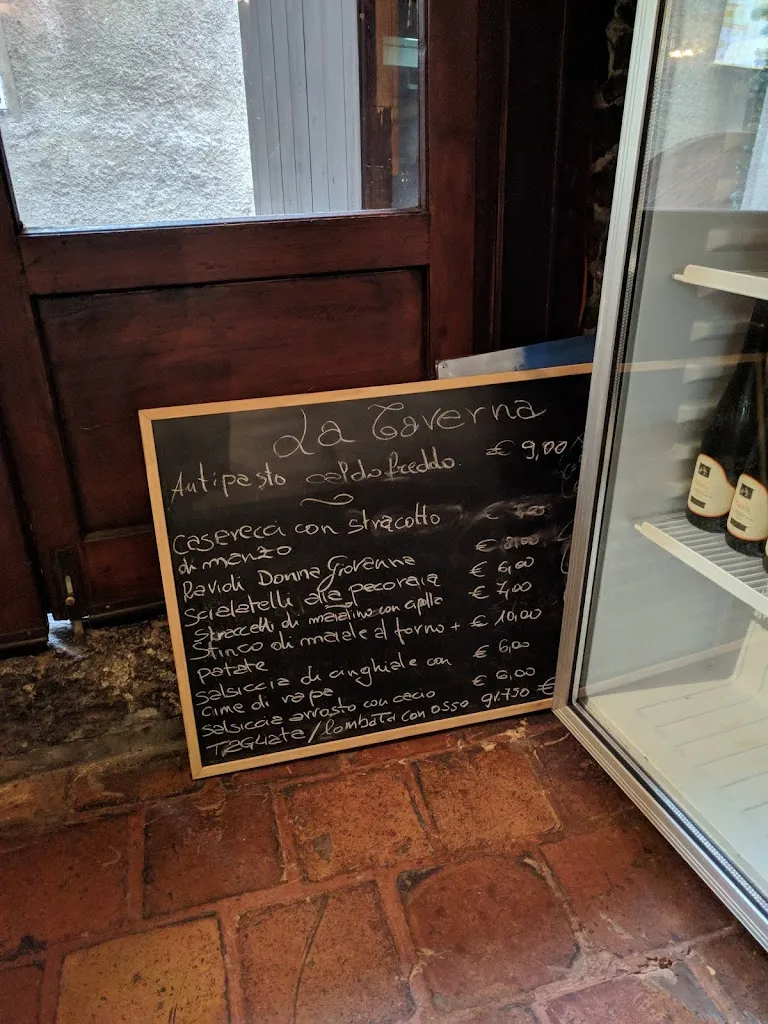 La Taverna
Antipasto caldo freddo. € 9,00
Caserecci con stracotto €
di manzo
Ravioli Donna Giovanna € 8,00
Scialatelli alla pecoraia € 6,00
Straccetti di maialino con cipolla € 7,00
Stinco di maiale al forno + € 10,00
patate
Salsiccia di cinghiale con € 6,00
cime di rape
Salsiccia arrosto con cacio € 6,00
TAGLIATA/lombata con osso gr.750 €